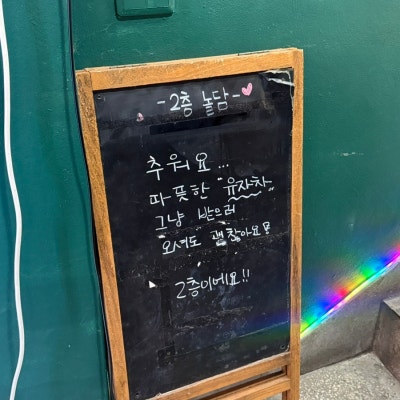 -2층 놀담-
추워요...
따뜻한 유자차
그냥 받으러
오셔도 괜찮아요!
2층이에요!!